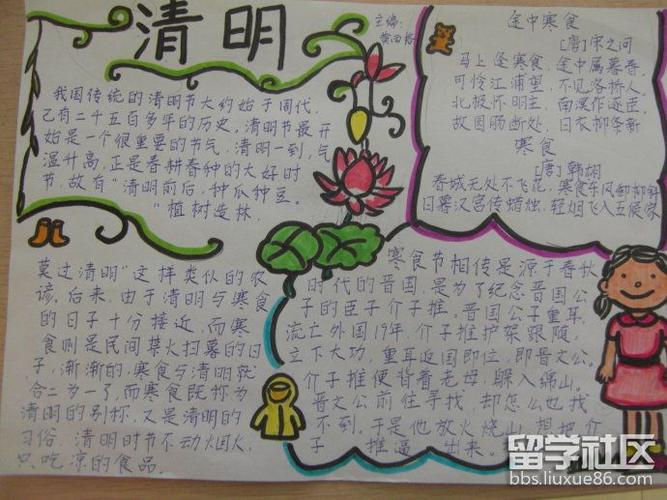 清明
主编:
我国传统的清明节大约始于周代,
已有二十五百多年的历史。清明节最开
始是一个很重要的节气,清明一到,气
温升高,正是春耕春种的大好时
节,故有“清明前后,种瓜种豆。
“植树造林,
莫过清明”这样类似的农
谚。后来,由于清明与寒食
的日子十分接近,而寒
食则是民间禁火扫墓的日
子,渐渐的,寒食与清明就
合二为一了,而寒食既称为
清明的别称,又是清明的
习俗,清明时节不动烟火,
只吃凉的食品。
途中寒食
[唐]宋之问
马上逢寒食,途中属暮春,
可怜江浦望,不见洛桥人,
北极怀明主,南溟作逐臣,
故园肠断处,日衣柳条新
寒食
[唐]韩翃
春城无处不飞花,寒食东风御柳斜
日暮汉宫传蜡烛,轻烟飞入五侯家
寒食节相传是源于春秋
时代的晋国,是为了纪念晋国公
子的臣子介子推。晋国公子重耳,
流亡外国19年,介子推护驾跟随,
立下大功,重耳返国即位,即晋文公,
介子推便背着老母,躲入绵山。
晋文公前往寻找,却怎么也找
不到,于是他放火烧山,想把介
子推逼出来。
留学社区
bbs.liuxue86.com